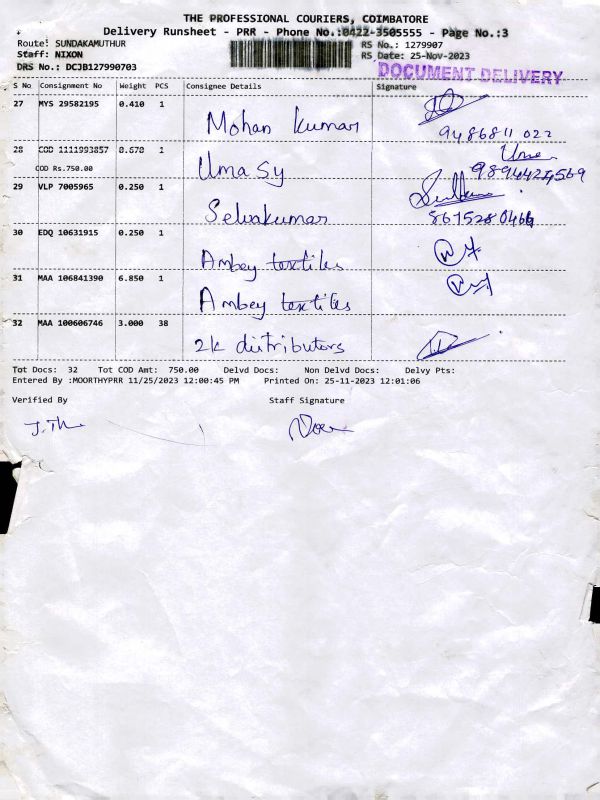 THE PROFESSIONAL COURIERS, COIMBATORE
Delivery Runsheet - PRR - Phone No.:0422-3505555 - Page No.:3
Route: SUNDAKAMUTHUR RS No.: 1279907
Staff: NIXON RS Date: 25-Nov-2023
DRS No.: DCJB127990703 DOCUMENT DELIVERY
S No Consignment No Weight PCS Consignee Details Signature
27 MYS 29582195 0.410 1 Mohan kumar
9486811 022
28 COD 1111993857 0.670 1 Uma Sy Uma
COD Rs.750.00 9894424569
29 VLP 7005965 0.250 1 Selvakumar
8675280466
30 EDQ 10631915 0.250 1 Ambey textiles
31 MAA 106841390 6.850 1 Ambey textiles
32 MAA 100606746 3.000 38 2k distributors
Tot Docs: 32 Tot COD Amt: 750.00 Delvd Docs: Non Delvd Docs: Delvy Pts:
Entered By :MOORTHYPRR 11/25/2023 12:00:45 PM Printed On: 25-11-2023 12:01:06
Verified By Staff Signature